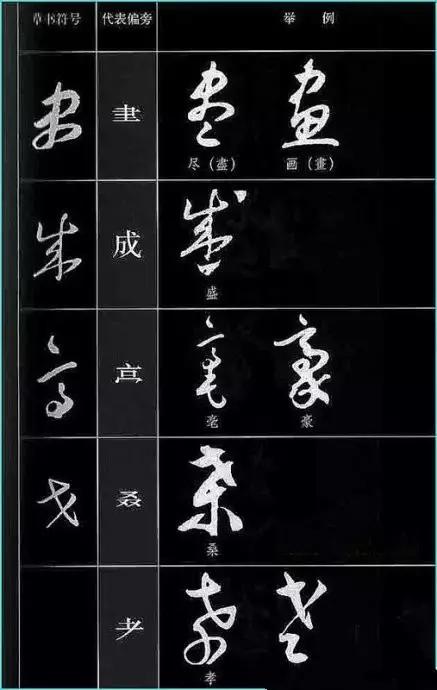 草书符号 代表偏旁 举例
尽（盡） 画（畫）
成
盛
亳 豪
叒
桑
耂
孝